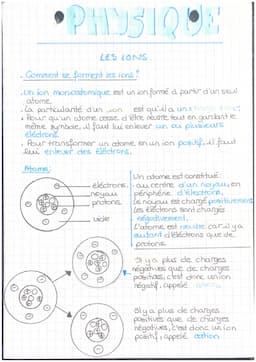 PHYSIQUE
LES IONS
. Comment se forment les ions?
. Un ion monoatomique est un ion formé à partir d'un seul
atome.
. La particularité d'un ion est qu'il a
. Pour qu'un atome cesse d'être neutre tout en gardant le
même symbole, il faut lui enlever un ou plusieurs
électrons
. Pour transformer un atome en un ion positif, il faut
lui enlever des électrons.
Atome:
électrons
noyau
protons
vide
Un atome est constitué:
. au centre d'un noyau, en
périphérie d'électrons,
Le noyau est chargé positivement
Les électrons sont chargés
négativement.
L'atome est neutre car il y a
autant d'électrons que de
protons.
Il y a plus de charges
négatives que de charges
positives, c'est donc un ion
négatif, appelé
Il y a plus de charges
positives que de charges
négatives, c'est donc un ion
positif, appelé cation